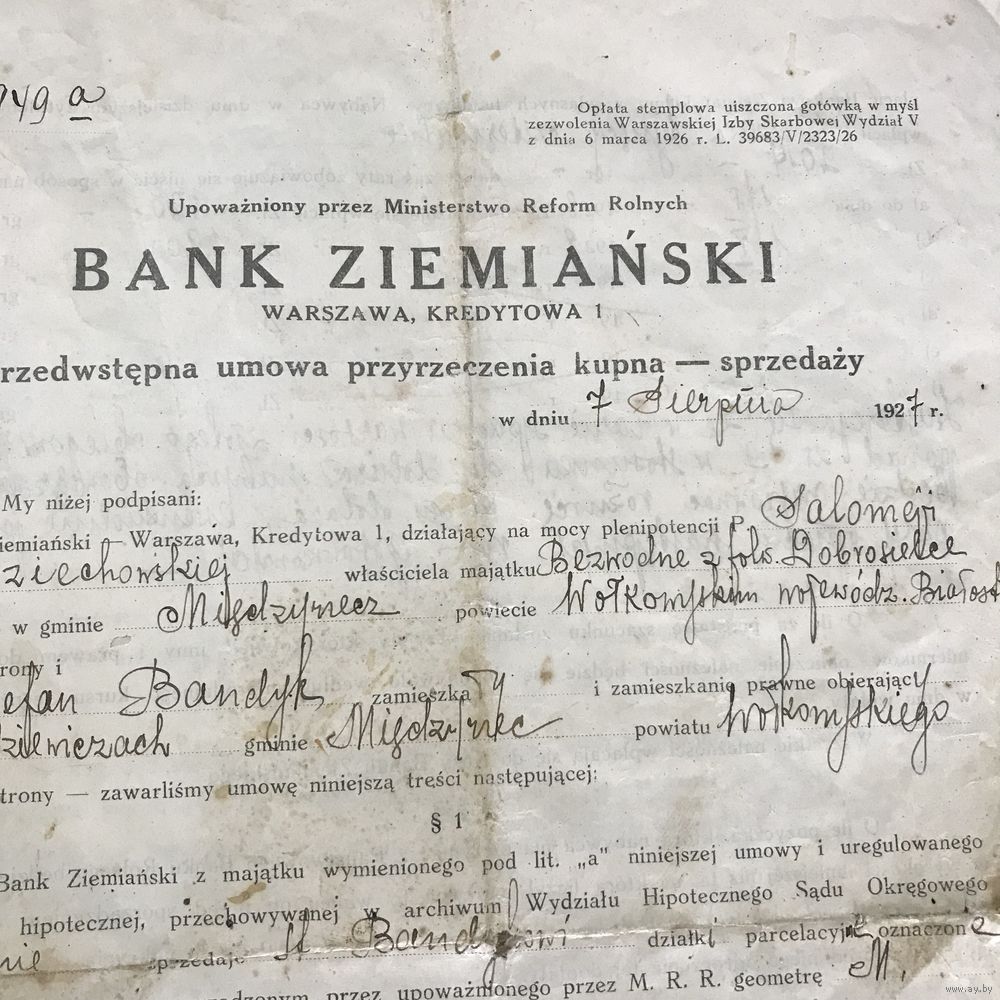 949 a
Opłata stemplowa uiszczona gotówką w myśl
zezwolenia Warszawskiej Izby Skarbowej Wydział V
z dnia 6 marca 1926 r. L. 39683/V/2323/26
Upoważniony przez Ministerstwo Reform Rolnych
BANK ZIEMIAŃSKI
WARSZAWA, KREDYTOWA 1
rzedwstępna umowa przyrzeczenia kupna — sprzedaży
w dniu 7 Sierpnia 1927 r.
My niżej podpisani:
iemiański — Warszawa, Kredytowa 1, działający na mocy plenipotencji P. Salomeji
ziechowskiej właściciela majątku Bezwodne z folw. Dobrosielce
w gminie Międzyrzecz powiecie Wołkowyskim wojewódz. Białost
rony i
efan Bandyk zamieszkały i zamieszkanie prawne obierający
zilewiczach gminie Międzyrzec powiatu Wołkowyskiego
trony — zawarliśmy umowę niniejszą treści następującej:
§ 1
Bank Ziemiański z majątku wymienionego pod lit. „a" niniejszej umowy i uregulowanego
hipotecznej, przechowywanej w archiwum Wydziału Hipotecznego Sądu Okręgowego
nie sprzedaje Bandykowi działki parcelacyjne oznaczone
adzonym przez upoważnionego przez M. R. R. geometrę M.
www.ay.by